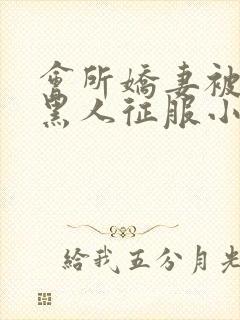 會所嬌妻被
黑人征服小
給我五分月光